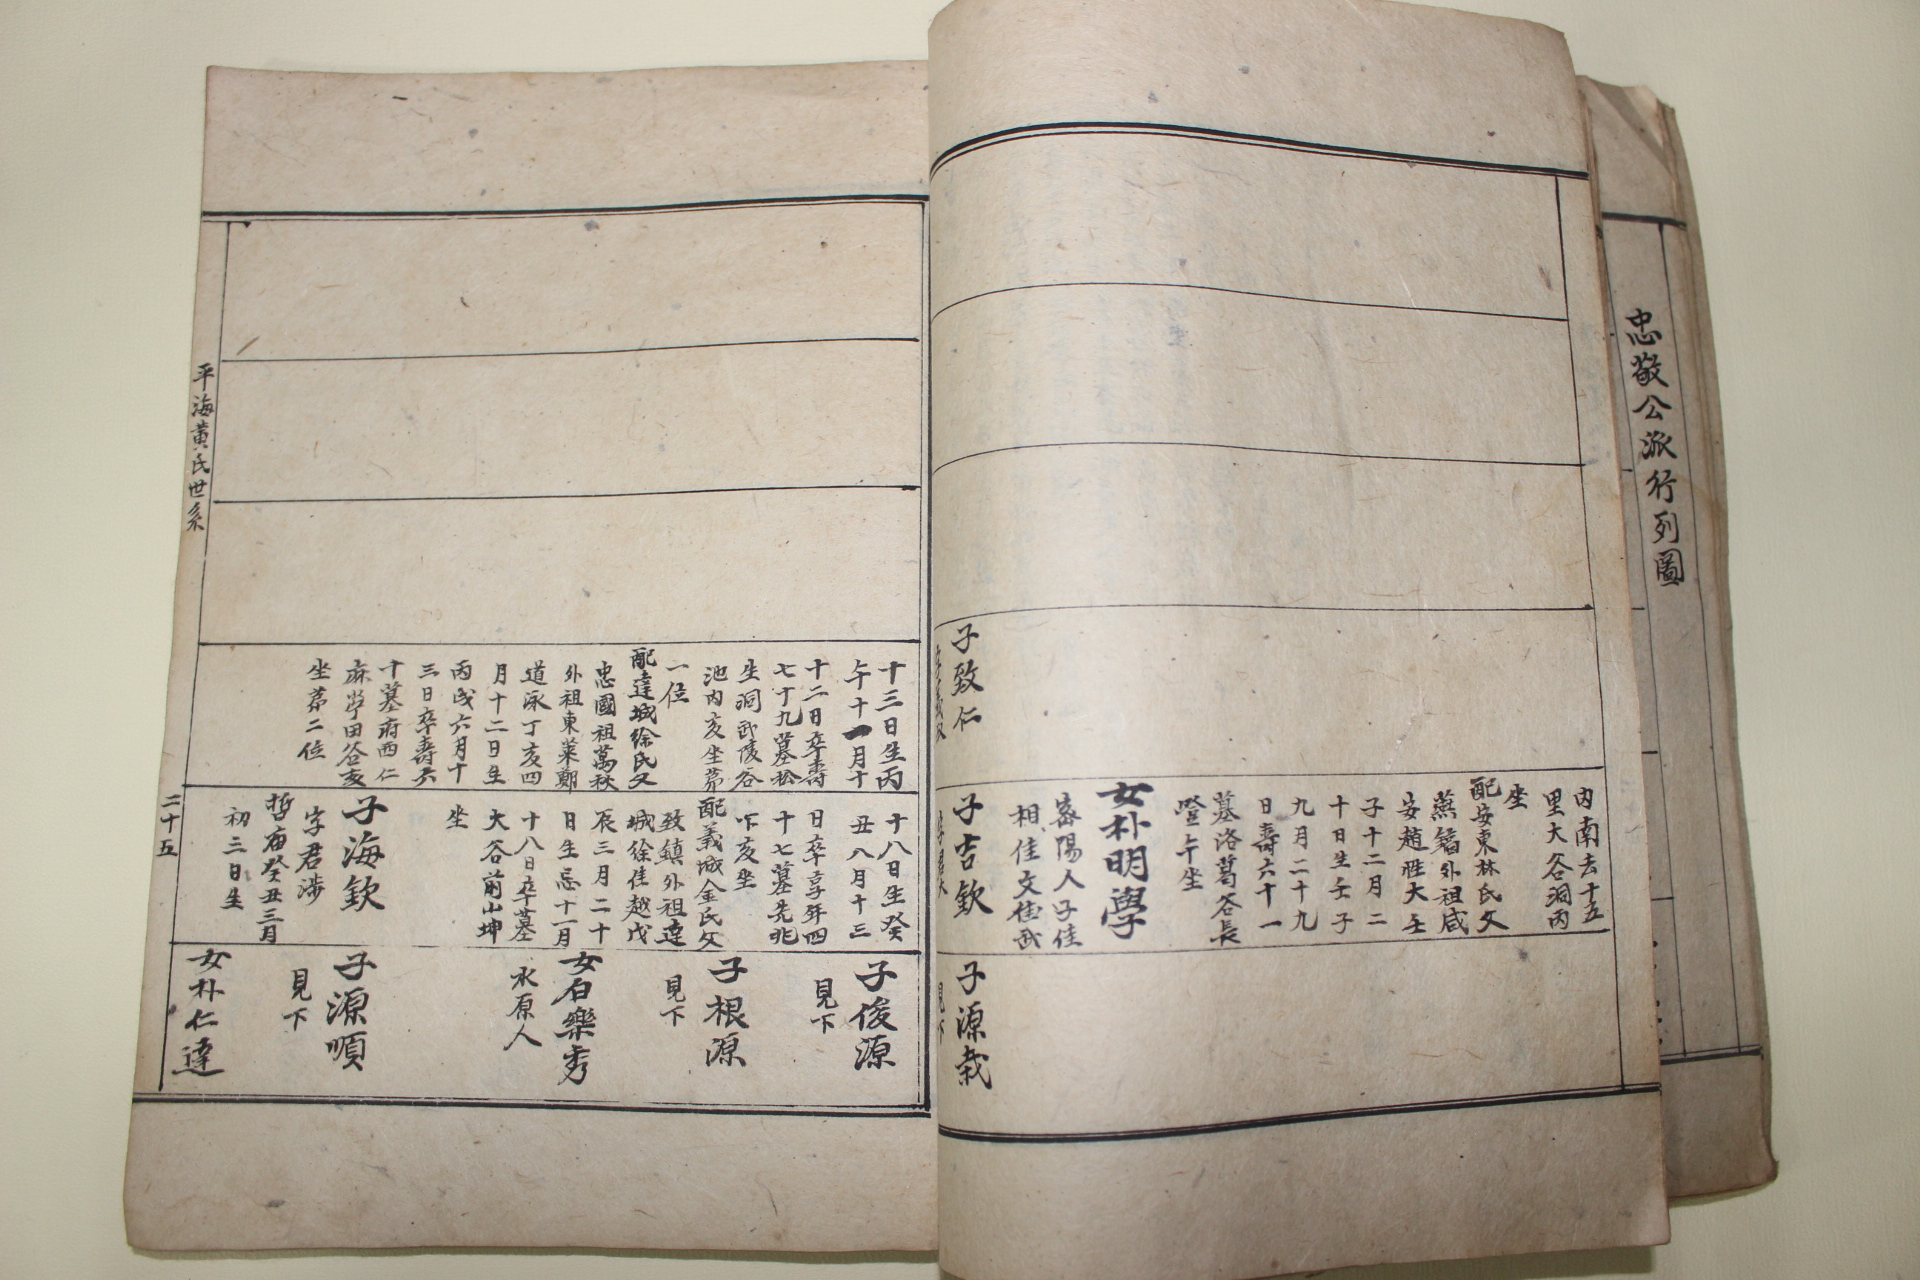 忠敬公派行列圖
內南去十五
里大谷洞丙
坐
配安東林氏父
燕鐥外祖咸
安趙胜大壬
子十二月二
十日生壬子
九月二十九
日壽六十一
墓洛葛谷長
嶝午坐
女朴明學
密陽人子佳
相佳文佳武
子致仁
子吉欽
子源栽
十三日生丙
午十一月十
十二日卒壽
七十九墓松
生洞武陵谷
池內亥坐第
一位
配達城徐氏父
忠國祖萬秋
外祖東萊鄭
道泳丁亥四
月十二日生
丙戌六月十
三日卒壽六
十墓府西仁
麻學田谷亥
坐第二位
十八日生癸
丑八月十三
日卒享年四
十七墓先兆
下亥坐
配義城金氏父
致鎮外祖達
城徐佳越戊
辰三月二十
日生忌十一月
十八日卒墓
大谷前山坤
坐
子海欽
字君涉
哲庙癸丑三月
初三日生
子俊源
見下
子根源
見下
女石樂秀
水原人
子源順
見下
女朴仁達
平海黃氏世系
二十五